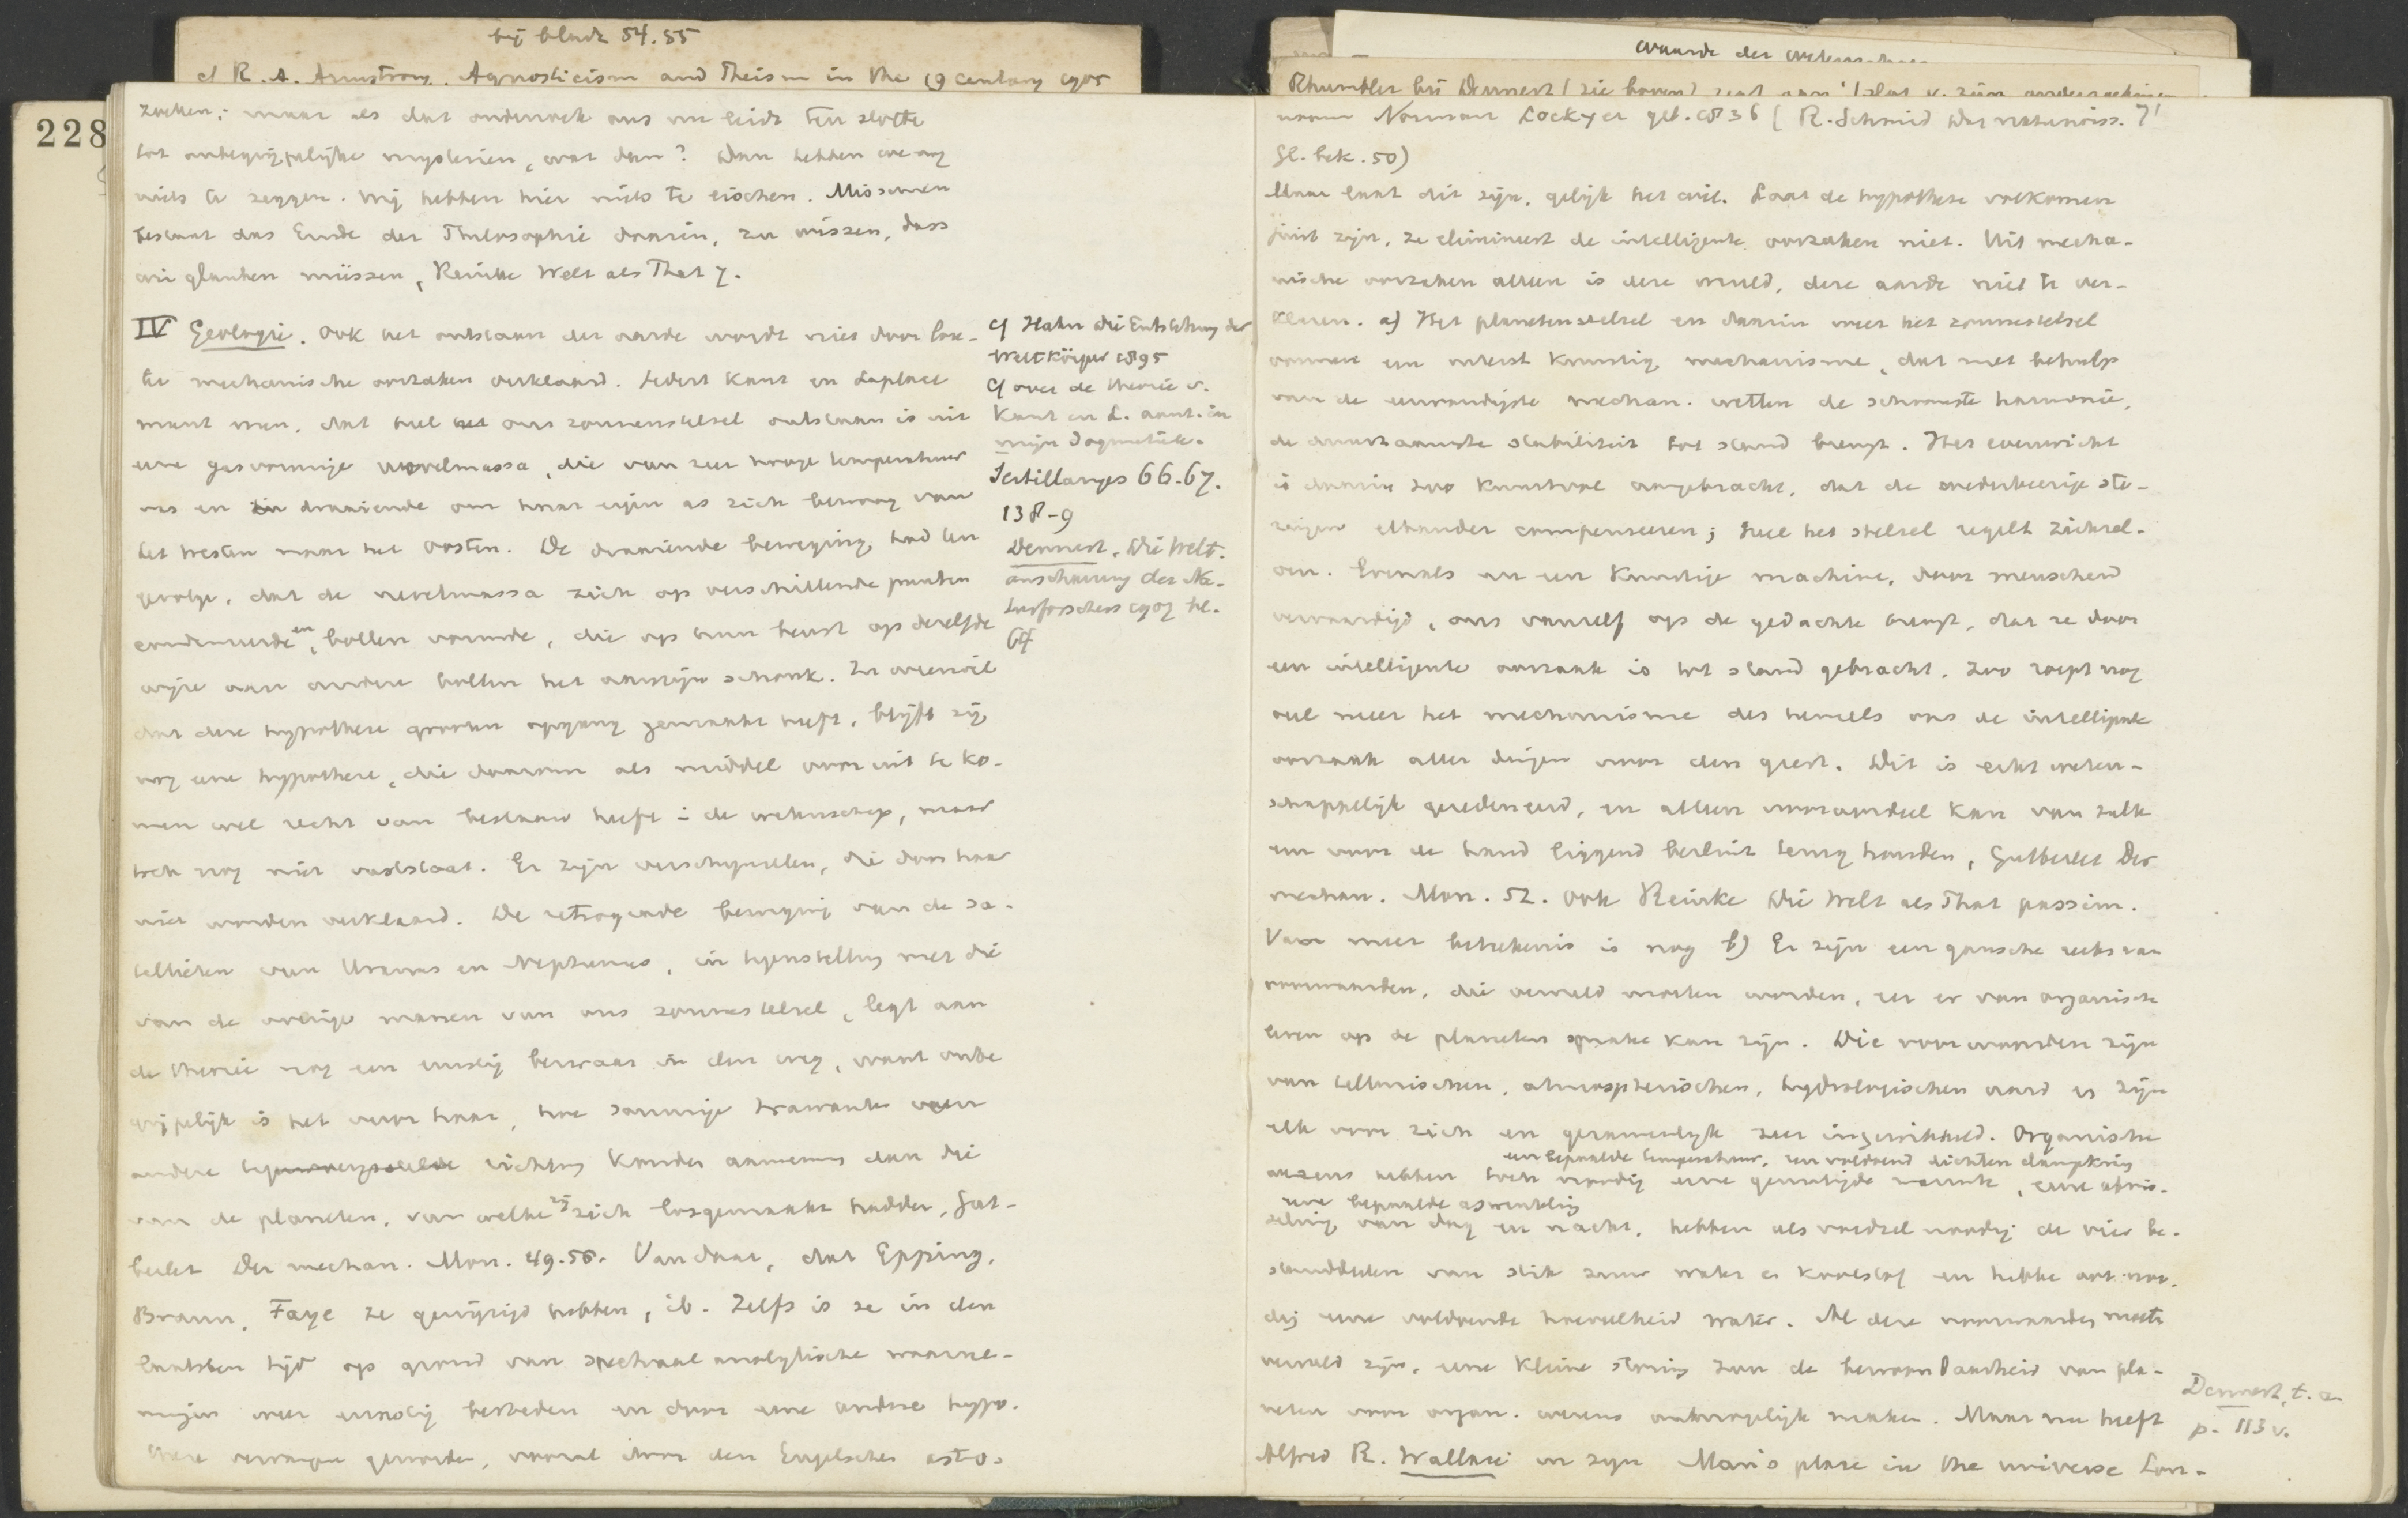 bij bladz 54.55
cf R. A. Armstrong. Agnosticism and Theism in the 19 century 1905
228
zoeken; maar als dat onderzoek ons nu leidt ten slotte
tot onbegrijpelijke mysterien, wat dan? Dan hebben we nog
niets te zeggen. Wij hebben hier niets te eischen. Misschien
bestaat das Ende der Philosophie daarin, zu wissen, dass
wir glauben müssen, Reinke Welt als That 7.
IV Geologie. Ook het ontstaan der aarde wordt niet door
mechanische oorzaken verklaard. Sedert Kant en Laplace
meent men, dat heel ons zonnenstelsel ontstaan is uit
eene gasvormige nevelmassa, die van zeer hooge temperatuur
was en draaiende om haar eigen as zich bewoog van
het westen naar het oosten. De draaiende beweging had ten
gevolge, dat de nevelmassa zich op verschillende punten
condenseerde en bollen vormde, die op hun beurt op dezelfde
wijze aan andere bollen het aanzijn schonk. En ofschoon
dat deze hypothese grooten opgang gemaakt heeft, blijft zij
nog eene hypothese, die daarom als middel vooruit te ko-
men wel recht van bestaan heeft in de wetenschap, maar
toch nog niet vaststaat. Er zijn verschijnselen, die door haar
niet worden verklaard. De retrograde beweging van de sa-
tellieten van Uranus en Neptunus, in tegenstelling met die
van de overige manen van ons zonnestelsel, legt aan
de theorie nog een ernstig bezwaar in den weg, want onbe
grijpelijk is het voor haar, hoe sommige trawanten een
andere richting konden aannemen dan die
van de planeten, van welke zij zich losgemaakt hadden, Gut-
berlet Der mechan. Mon. 49.50. Vandaar, dat Epping,
Braun, Faye ze gewijzigd hebben, ib. Zelfs is ze in den
laatsten tijd op grond van spectraal analytische waarne-
mingen weer ernstig bestreden en door eene andere hypo-
these vervangen geworden, vooral door den Engelschen astro-
cf Hahn die Entstehung der
Weltkörper 1895
cf over de theorie v.
Kant en L. aant. in
mijn Dogmatiek.
Sertillanges 66.67.
138-9
Dennert, Die Welt-
anschauung der Na-
turforscher 1907 bl.
64
waarde der wetenschap
Rhumbler bij Dennert (zie boven) zegt van
noom Norman Lockyer geb. 1836 (R. Schmid Das naturwiss.
Gl. bek. 50)
Maar laat dit zijn, gelijk het wil. Laat de hypothese volkomen
juist zijn, ze elimineert de intelligente oorzaken niet. Uit mecha-
nische oorzaken alleen is deze wereld, deze aarde niet te ver-
klaren. a) Het planetenstelsel en daarin weer het zonnestelsel
vormen een uiterst kunstig mechanisme, dat met behulp
van de eenvoudigste mechan. wetten de schoonste harmonie,
de duurzaamste stabiliteit tot stand brengt. Het evenwicht
is daarin zoo kunstvol aangebracht, dat de wederkeerige sto-
ringen elkander compenseeren; heel het stelsel regelt zichzel-
ven. Evenals nu een kunstige machine, door menschen
vervaardigd, ons vanzelf op de gedachte brengt, dat ze door
een intelligente oorzaak is tot stand gebracht, zoo roept nog
veel meer het mechanisme des hemels ons de intelligente
oorzaak aller dingen voor den geest. Dit is echt weten-
schappelijk geredeneerd, en alleen vooroordeel kan van zulk
een voor de hand liggend besluit terug houden, Gutberlet Der
mechan. Mon. 52. ook Reinke Die Welt als That passim.
Van meer beteekenis is nog b) Er zijn een gansche reeks van
voorwaarden, die vervuld moeten worden, eer er van organische
leven op de planeten sprake kan zijn. Die voorwaarden zijn
van tellurischen, atmospherischen, hydrologischen aard en zijn
elk voor zich en gezamenlijk zeer ingewikkeld. Organische
een bepaalde temperatuur, een voldoend dichten dampkring
wezens hebben toch noodig eene gematigde warmte, eene afwis-
eene bepaalde aswenteling
seling van dag en nacht, hebben als voedsel noodig de vier be-
standdeelen van stik zuur water en koolstof en hebben ook noo-
dig eene voldoende hoeveelheid water. Al deze voorwaarden moeten
vervuld zijn, eene kleine storing zou de bewoonbaarheid van pla-
neten voor organ. wezens onmogelijk maken. Maar nu heeft
Alfred R. Wallace in zijn Man's place in the universe Lon-
Dennert, t. a.
p. 113 v.